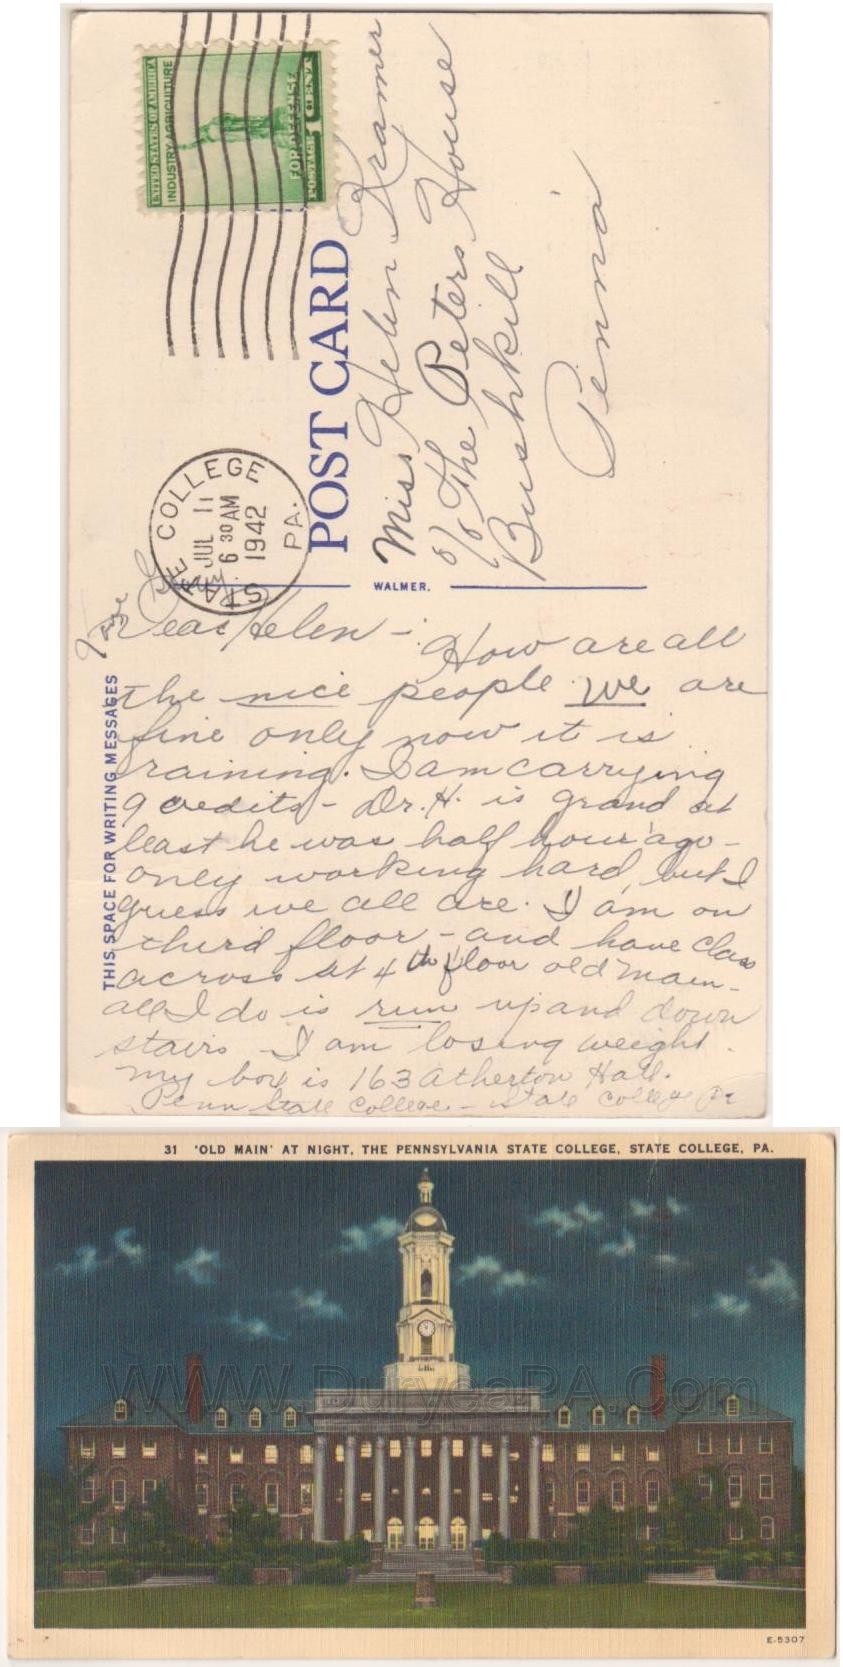 UNITED STATES OF AMERICA
INDUSTRY AGRICULTURE
FOR DEFENSE
POSTAGE 1 CENT
STATE COLLEGE
JUL 11
6 30 AM
1942
PA.
POST CARD
Miss Helen Kramer
c/o The Peters House
Bushkill
Penn'a
WALMER.
THIS SPACE FOR WRITING MESSAGES
Dear Helen -
How are all
the nice people. We are
fine only now it is
raining. I am carrying
9 credits - Dr. H. is grand at
least he was half hour ago -
only working hard, but I
guess we all are. I am on
third floor - and have class
across at 4th floor old main -
all I do is run up and down
stairs - I am losing weight.
My box is 163 Atherton Hall.
Penn State College - State College Pa
31 'OLD MAIN' AT NIGHT, THE PENNSYLVANIA STATE COLLEGE, STATE COLLEGE, PA.
WWW.DuryeaPA.Com
E-5307